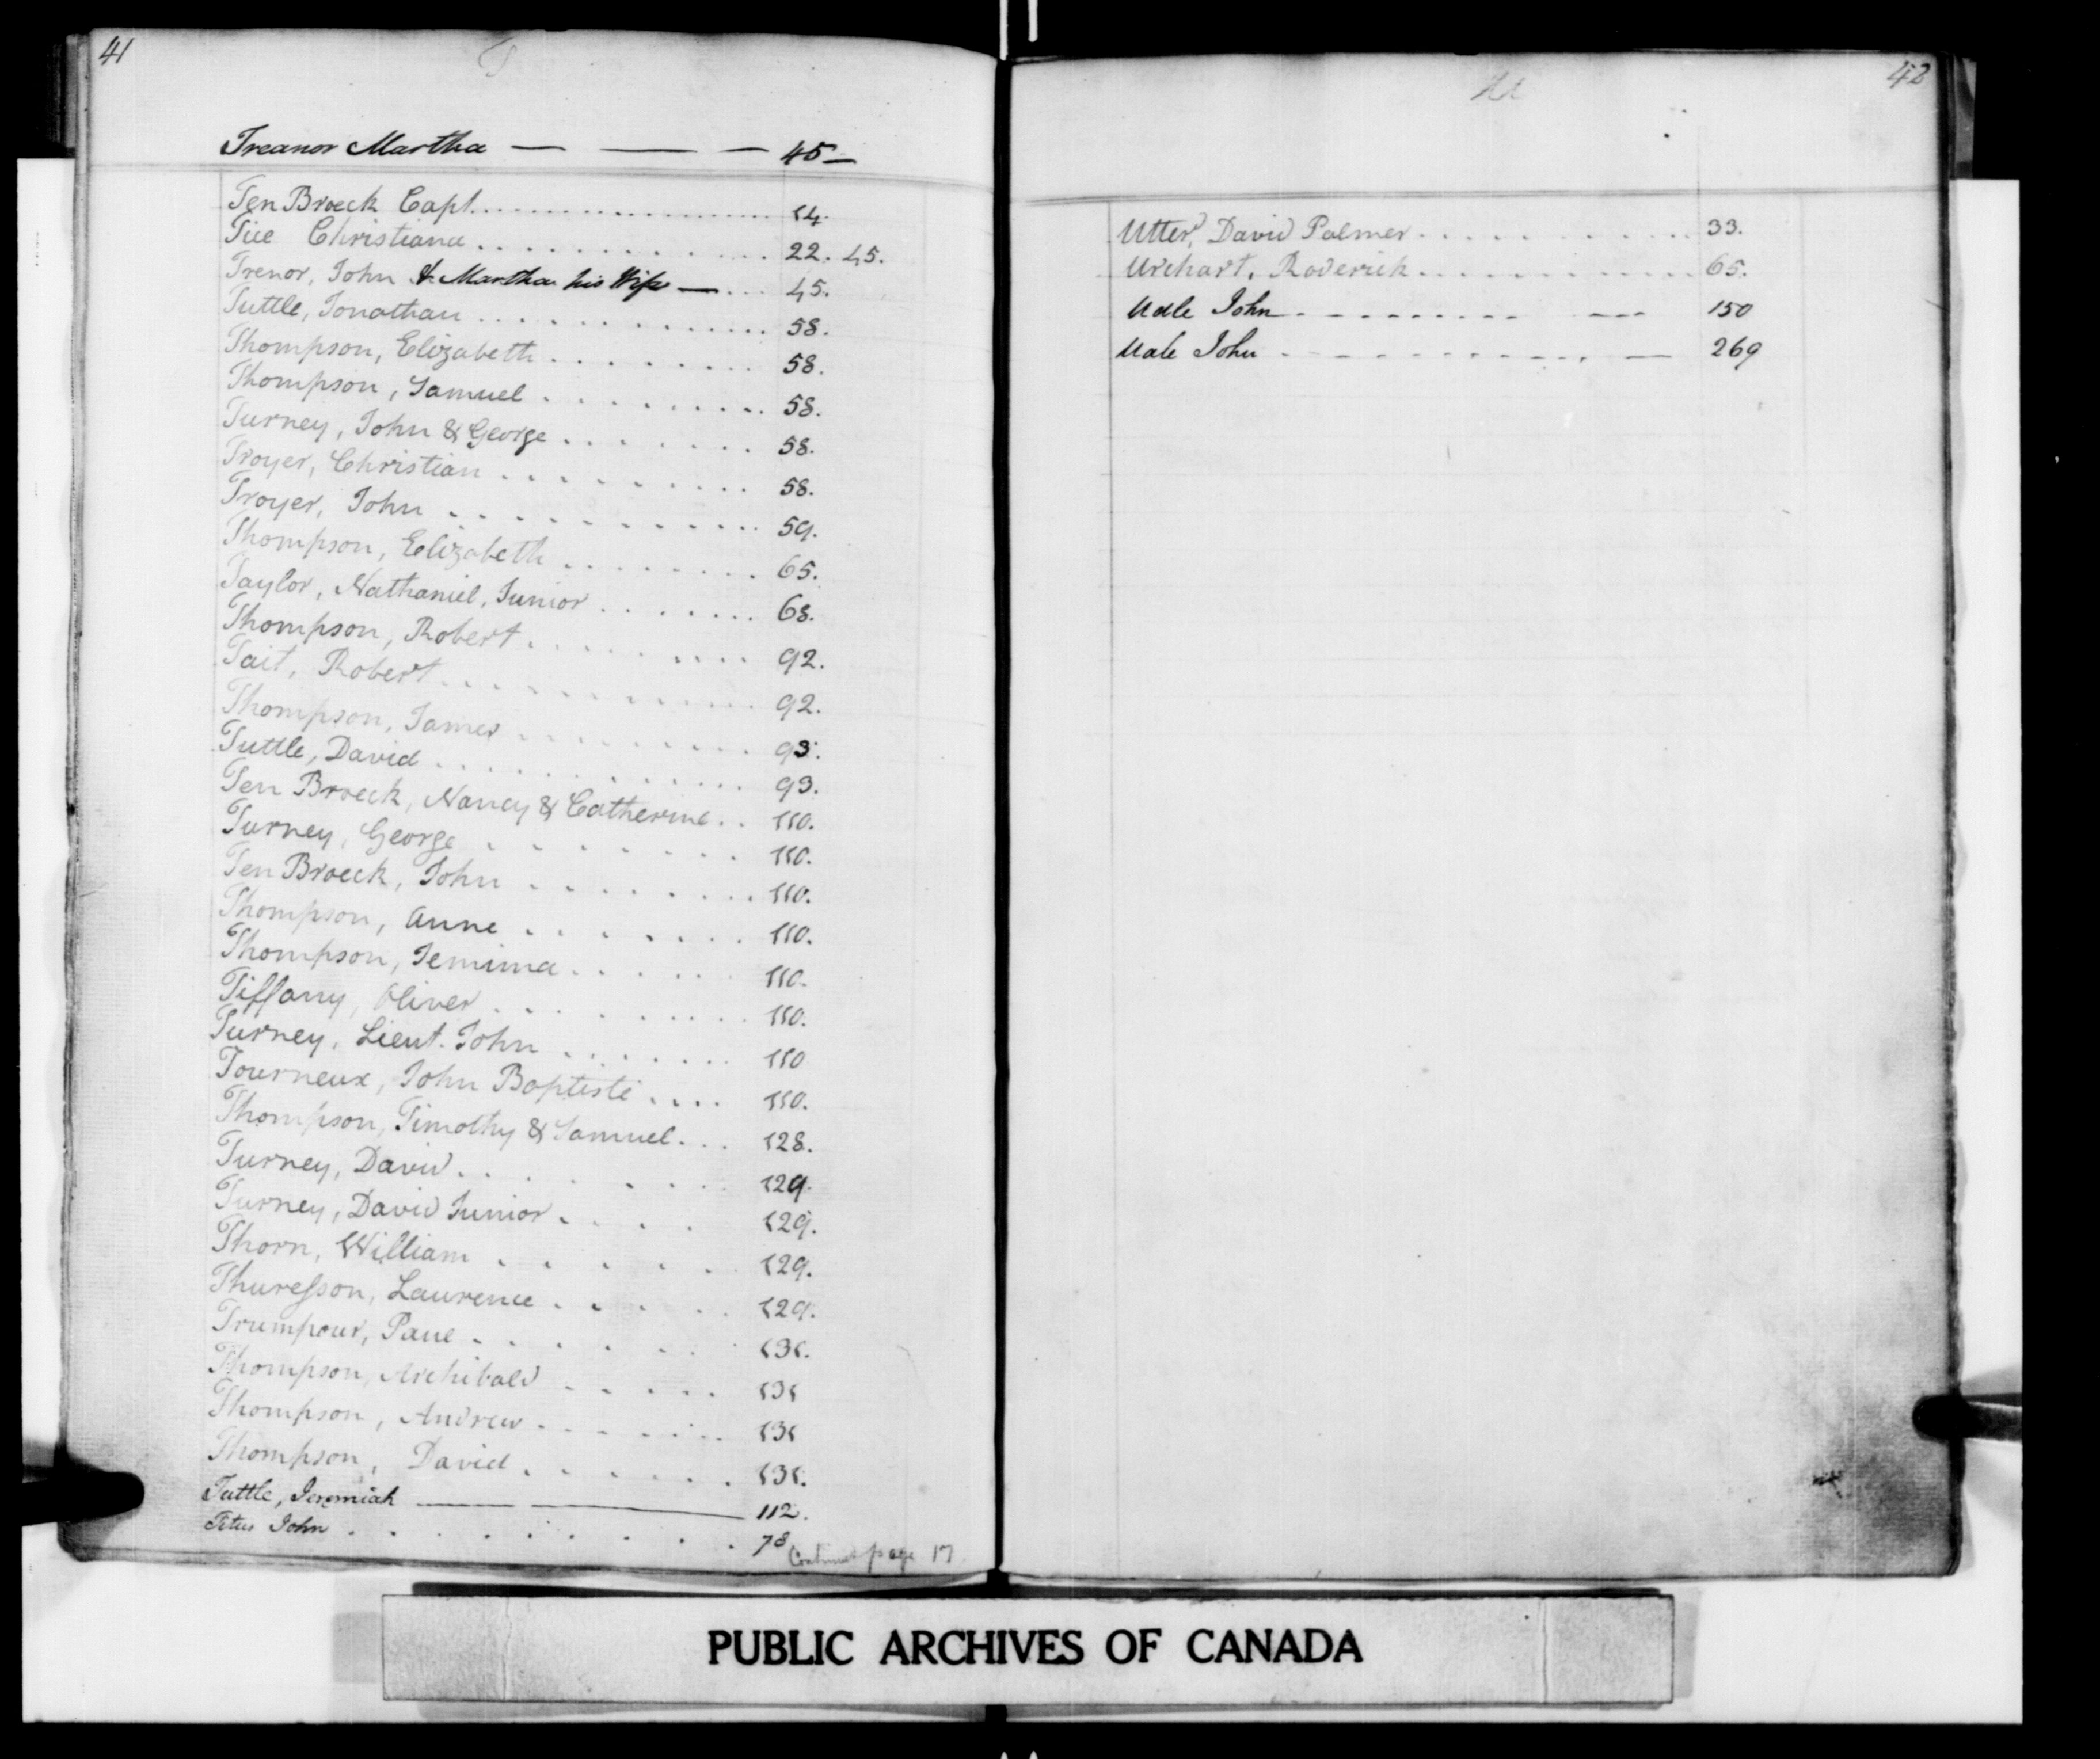 41
T
Treanor Martha — — — 45 —
Ten Broeck Capt. . . . . . . . . . . . 14.
Tice Christiana . . . . . . . . . . . 22. 45.
Trenor, John & Martha his Wife — . . . 45.
Tuttle, Jonathan . . . . . . . . . . . 58.
Thompson, Elizabeth . . . . . . . . . 58.
Thompson, Samuel . . . . . . . . . . 58.
Turney, John & George . . . . . . . 58.
Troyer, Christian . . . . . . . . . 58.
Troyer, John . . . . . . . . . . . 59.
Thompson, Elizabeth . . . . . . . . 65.
Taylor, Nathaniel, Junior . . . . . . . 68.
Thompson, Robert . . . . . . . . . 92.
Tait, Robert . . . . . . . . . . . 92.
Thompson, James . . . . . . . . . 93.
Tuttle, David . . . . . . . . . . . 93.
Ten Broeck, Nancy & Catherine . . 110.
Turney, George . . . . . . . . 110.
Ten Broeck, John . . . . . . . . 110.
Thompson, Anne . . . . . . . 110.
Thompson, Jemima . . . . . . 110.
Tiffany, Oliver . . . . . . . . . 110.
Turney, Lieut. John . . . . . . . 110
Tourneux, John Baptiste . . . . 110.
Thompson, Timothy & Samuel . . . 128.
Turney, David . . . . . . . . 129.
Turney, David Junior . . . . 129.
Thorn, William . . . . . . 129.
Thuresson, Laurence . . . . . 129.
Trumpour, Paul . . . . . . . 131.
Thompson, Archibald . . . . . 131
Thompson, Andrew . . . . . . . 131
Thompson, David . . . . . . . 131.
Tuttle, Jeremiah ——— ——— 112.
Titus John . . . . . . . . . 78
Continued page 17
42
U
Utter, David Palmer . . . . . . . . . . 33.
Urchart, Roderick . . . . . . . . . . 65.
Udle John - - - - - - - - - - - 150
Uale John - - - - - - - - - - — 269
PUBLIC ARCHIVES OF CANADA